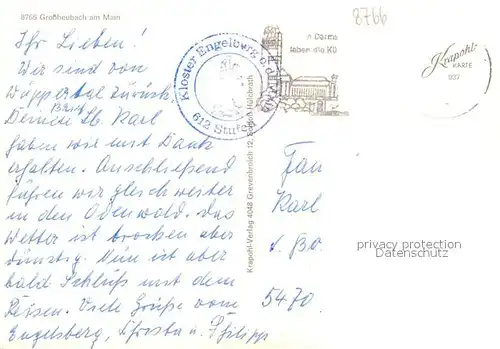 8766 Großheubach am Main
8766
Ihr Lieben!
Wir sind von
Wuppertal zurück.
Deinen Brief lb. Karl
haben wir mit Dank
erhalten. Anschließend
fuhren wir gleich weiter
in den Odenwald. Das
Wetter ist trocken aber
dunstig. Nun ist aber
bald Schluß mit dem
Reisen. Viele Grüße vom
Engelsberg, u. Philipp
Kloster Engelburg a. d.
612 Stufen
n Darms
leben die Kü
Krapohl-Verlag 4048 Grevenbroich 12, Schloß Hülchrath
Krapohl-
KARTE
Fam
Karl
privacy protection
Datenschutz
5470